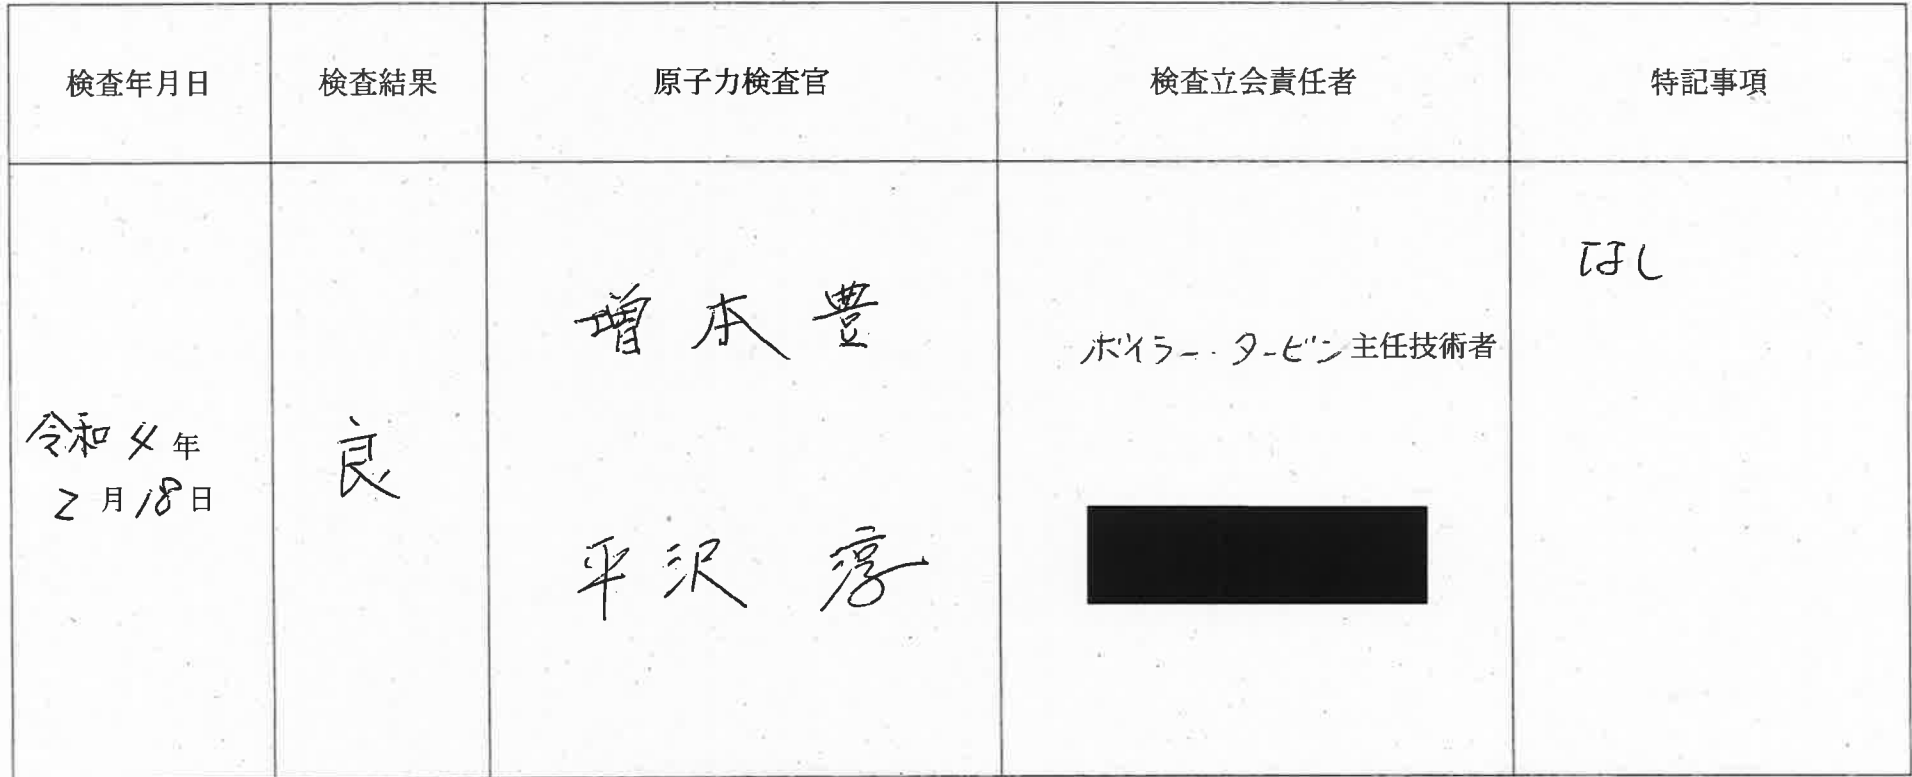 検査年月日 検査結果 原子力検査官 検査立会責任者 特記事項
令和4年
2月18日
良
増本豊
平沢 淳
ボイラー・タービン主任技術者
なし